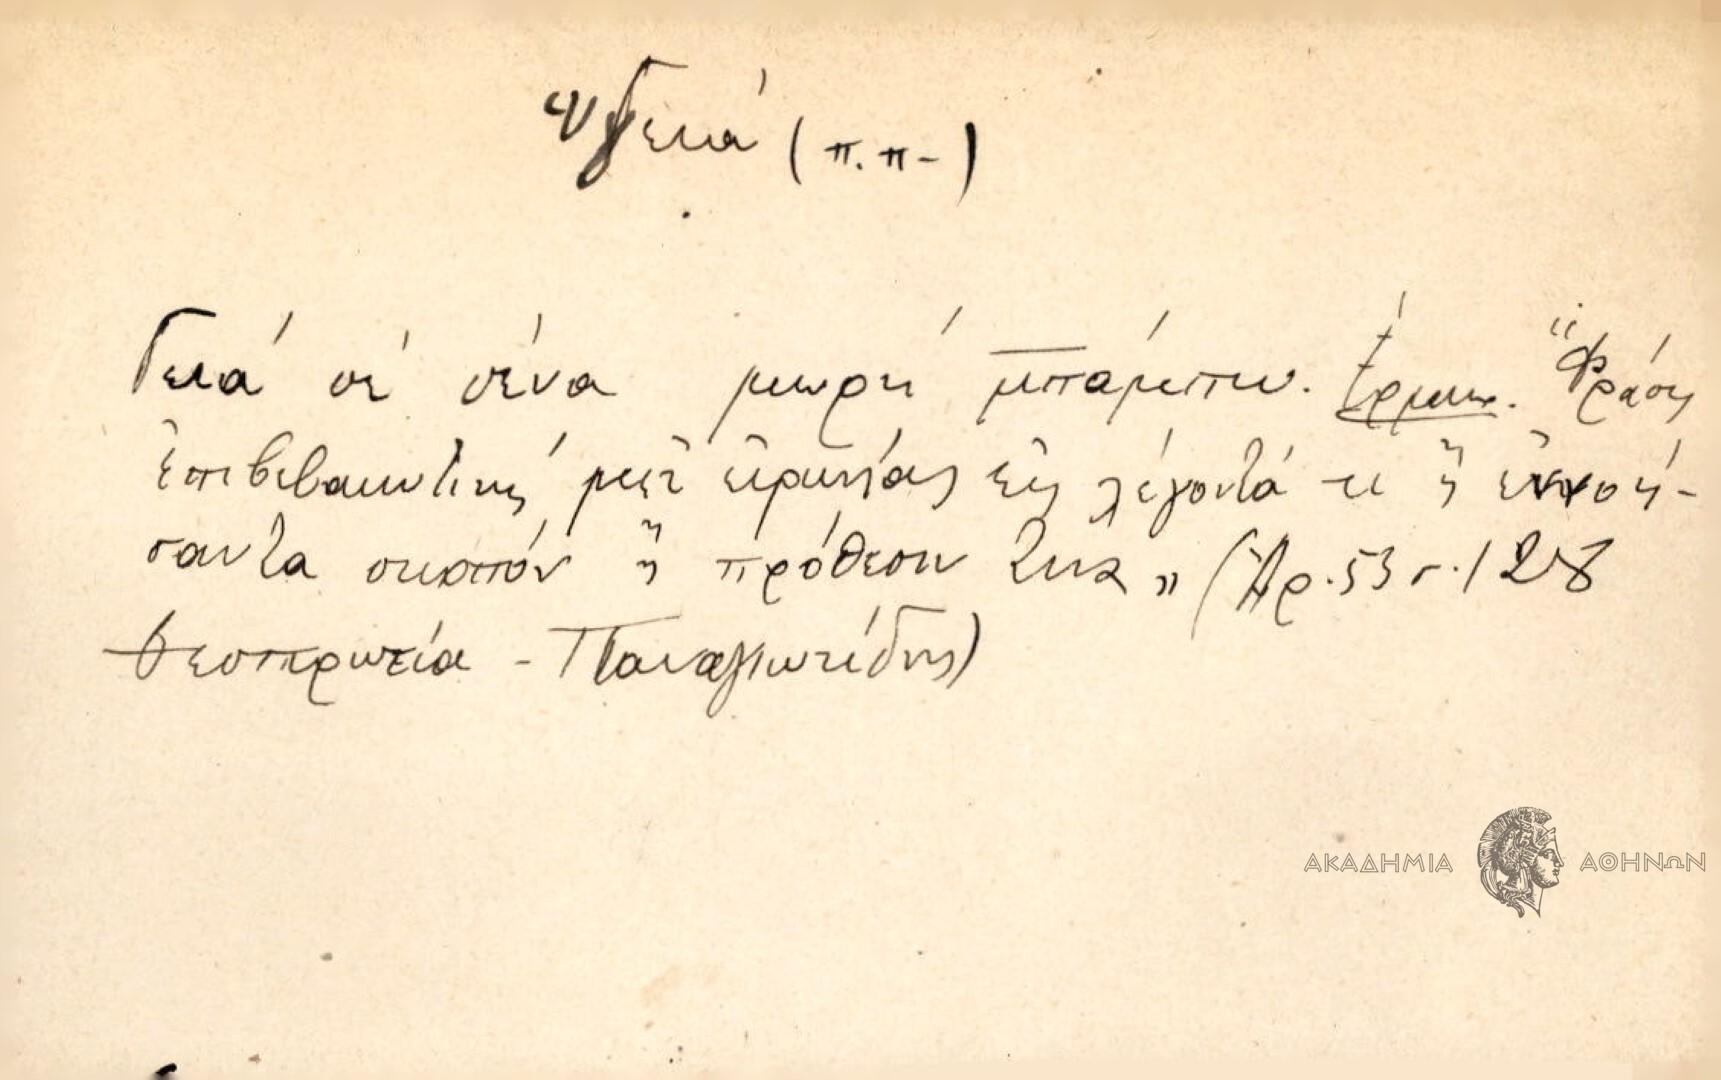 ὑγειά (π.π-)
Γειά σέ σένα μωρή μπάμπω. Ἑρμην. "Φράσις
ἐπιβεβαιωτική μετ' εἰρωνείας εἰς λέγοντά τι ἤ ἐννοή-
σαντα σκοπόν ἤ πρόθεσιν τινα" (Ἀρ. 53 σ. 128
Θεσπρωτία - Παναγιωτίδης)
ΑΚΑΔΗΜΙΑ ΑΘΗΝΩΝ